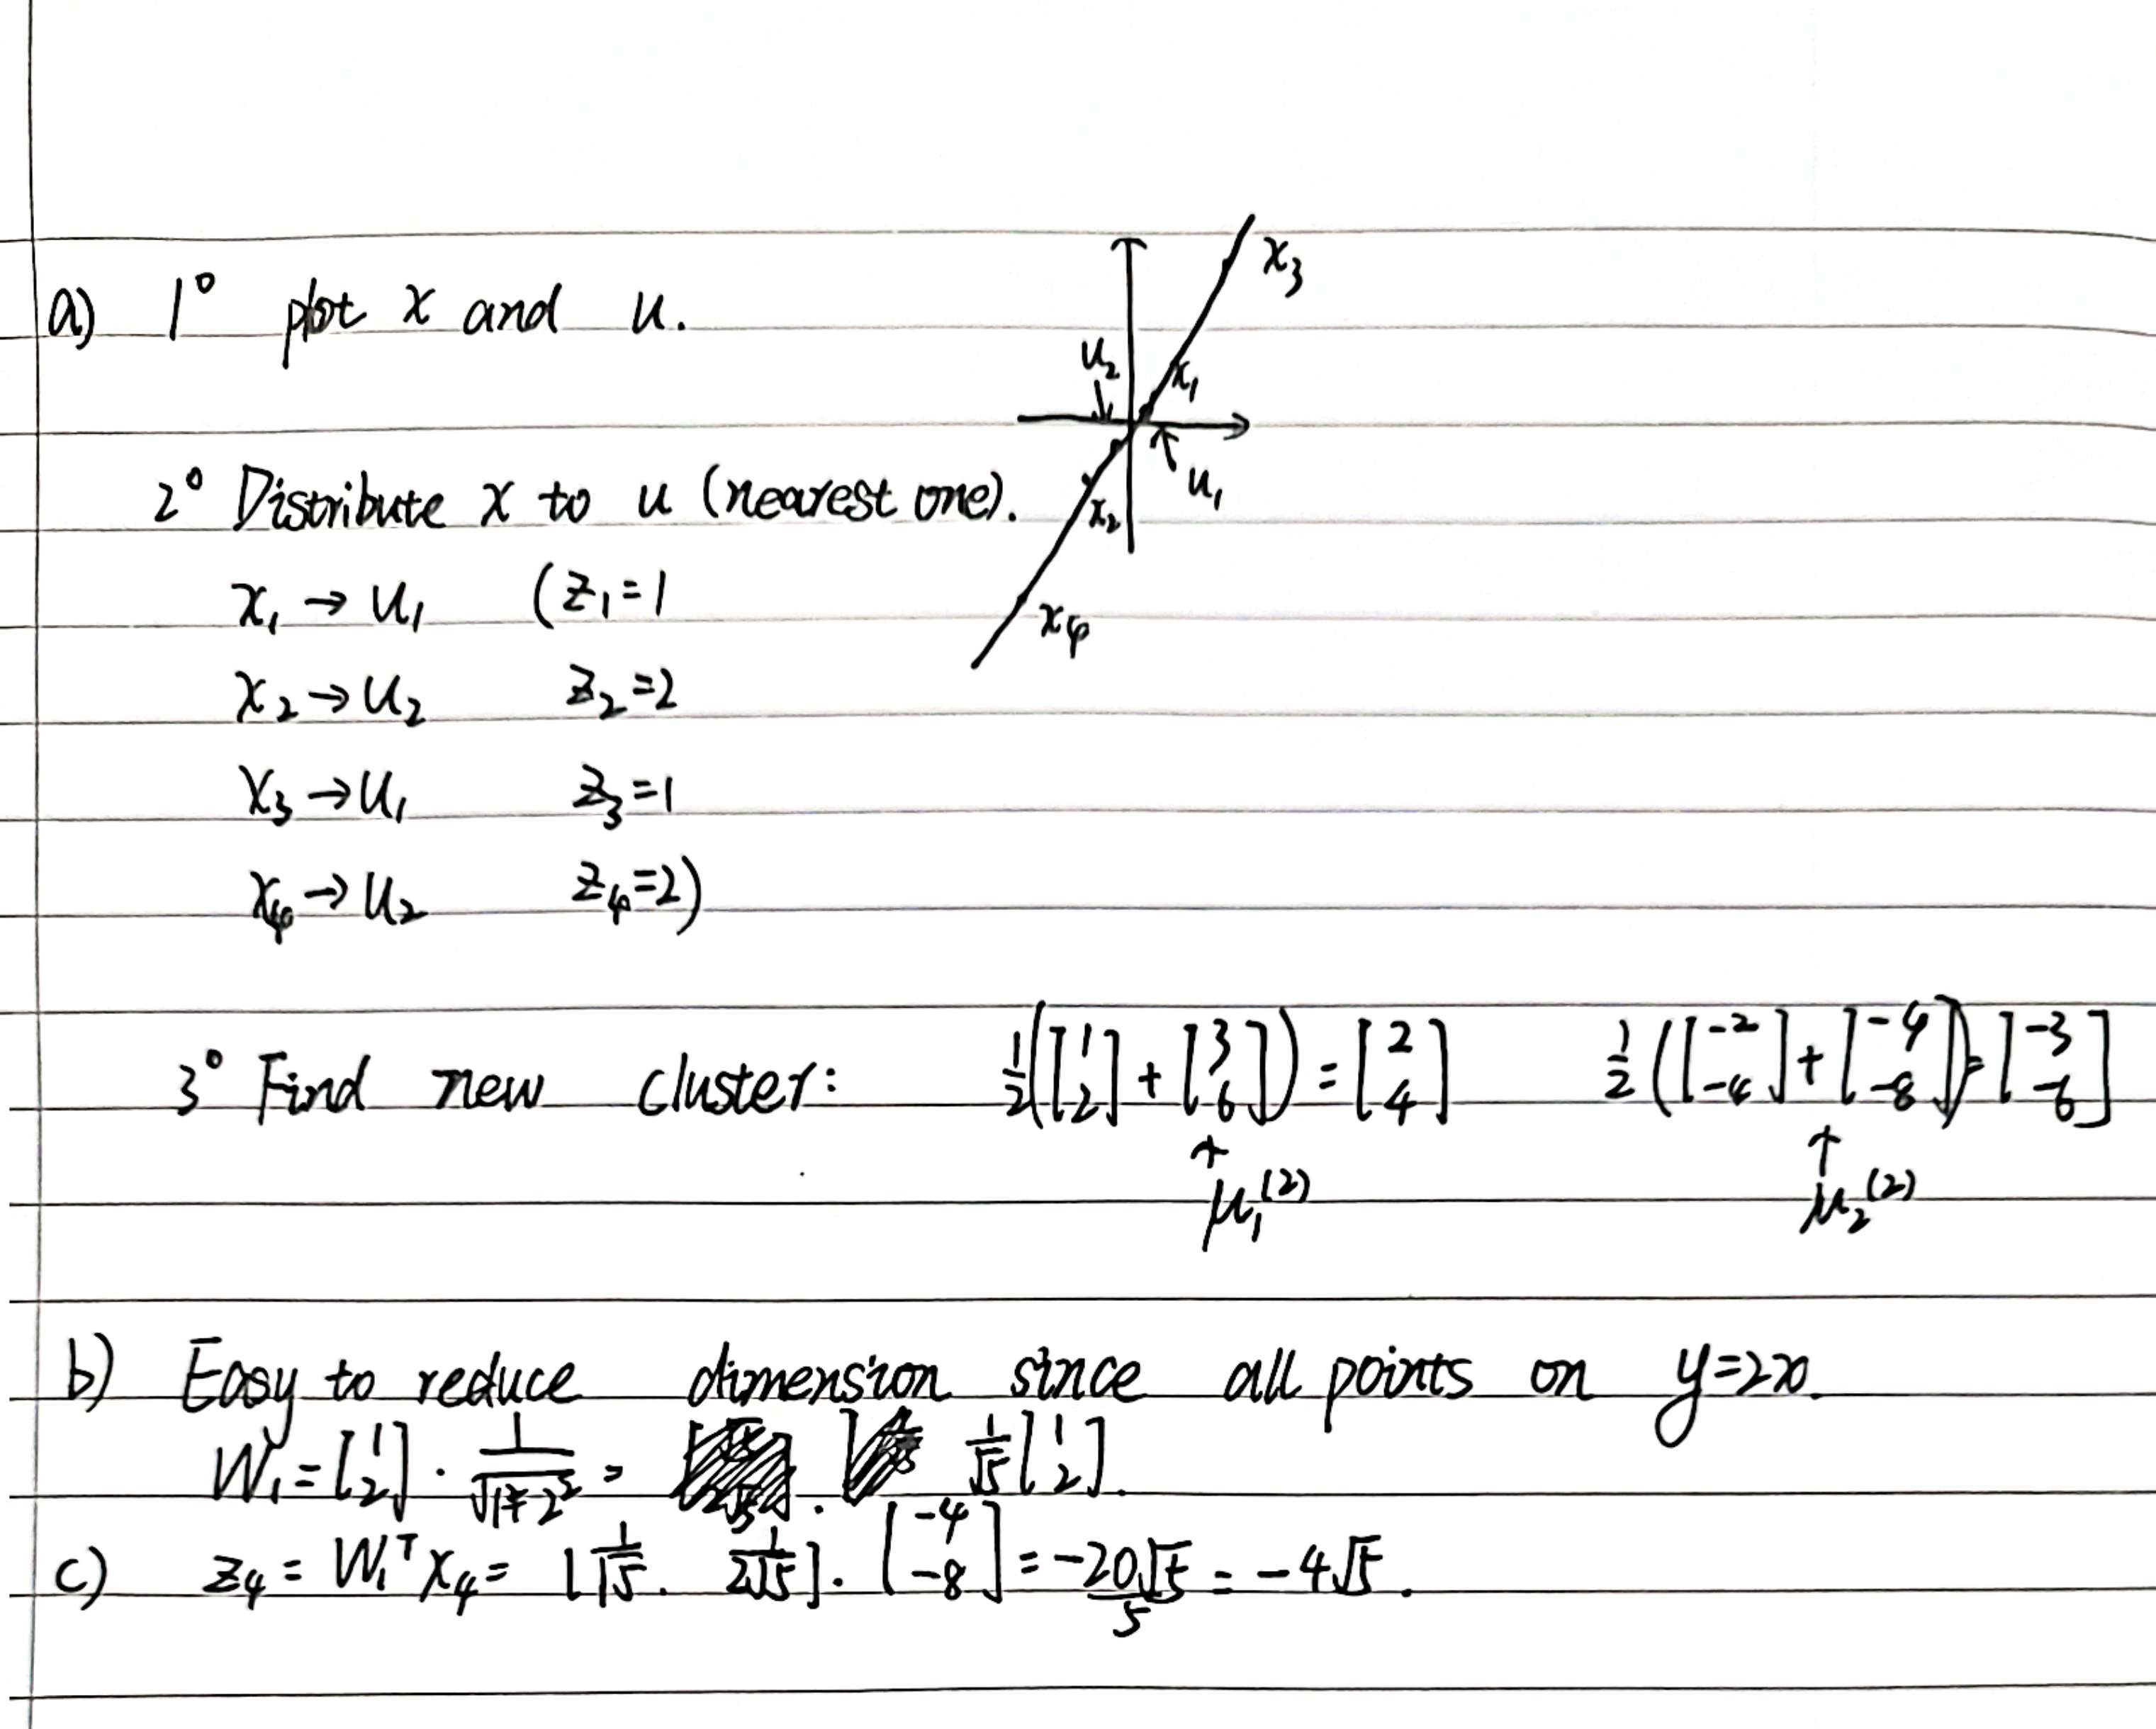 a) 1° plot x and u.
x₃
u₂
x₁
u₁
x₂
x₄
2° Distribute x to u (nearest one).
x₁ → u₁ (z₁=1
x₂ → u₂ z₂=2
x₃ → u₁ z₃=1
x₄ → u₂ z₄=2)
3° Find new cluster: 1/2([1 2] + [3 6]) = [2 4] 1/2([-2 -4] + [-4 -8]) = [-3 -6]
↑ μ₁⁽²⁾ ↑ μ₂⁽²⁾
b) Easy to reduce dimension since all points on y=2x.
W₁ = [1 2] · 1/√(1²+2²) = 1/√5 [1 2].
c) z₄ = W₁ᵀ x₄ = [1/√5 . 1/2√5] . [-4 -8] = -20√5/5 = -4√5.